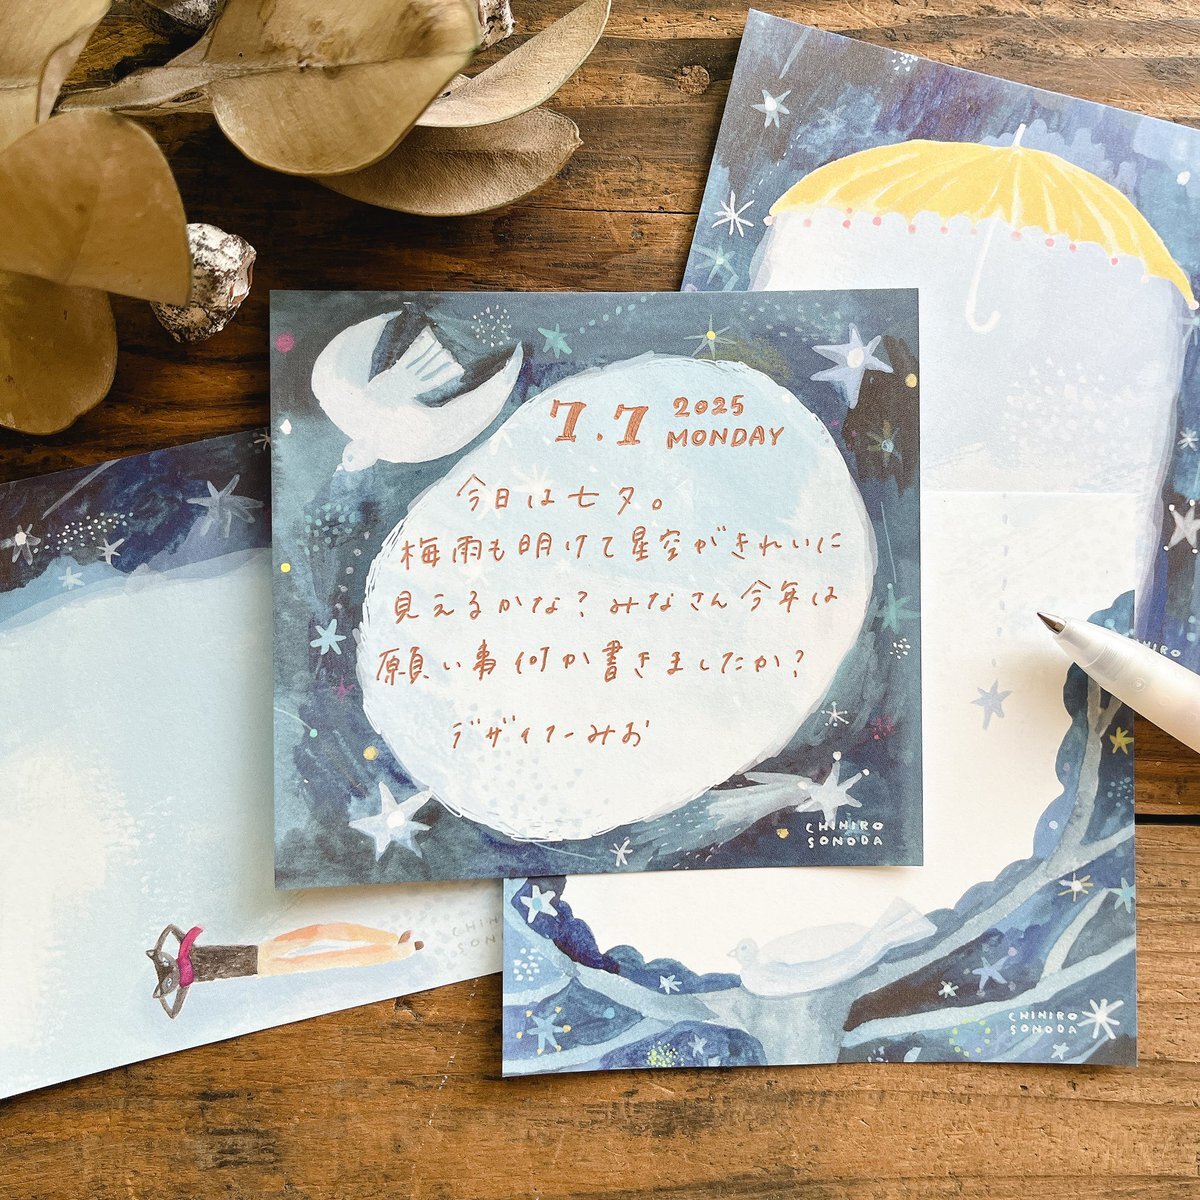 7.7 2025
MONDAY
今日は七夕。
梅雨も明けて星空がきれいに
見えるかな？みなさん今年は
願い事何か書きましたか？
デザイナーみお
CHIHIRO
SONODA
CHIHIRO
SONODA
CHIHIRO
SONODA